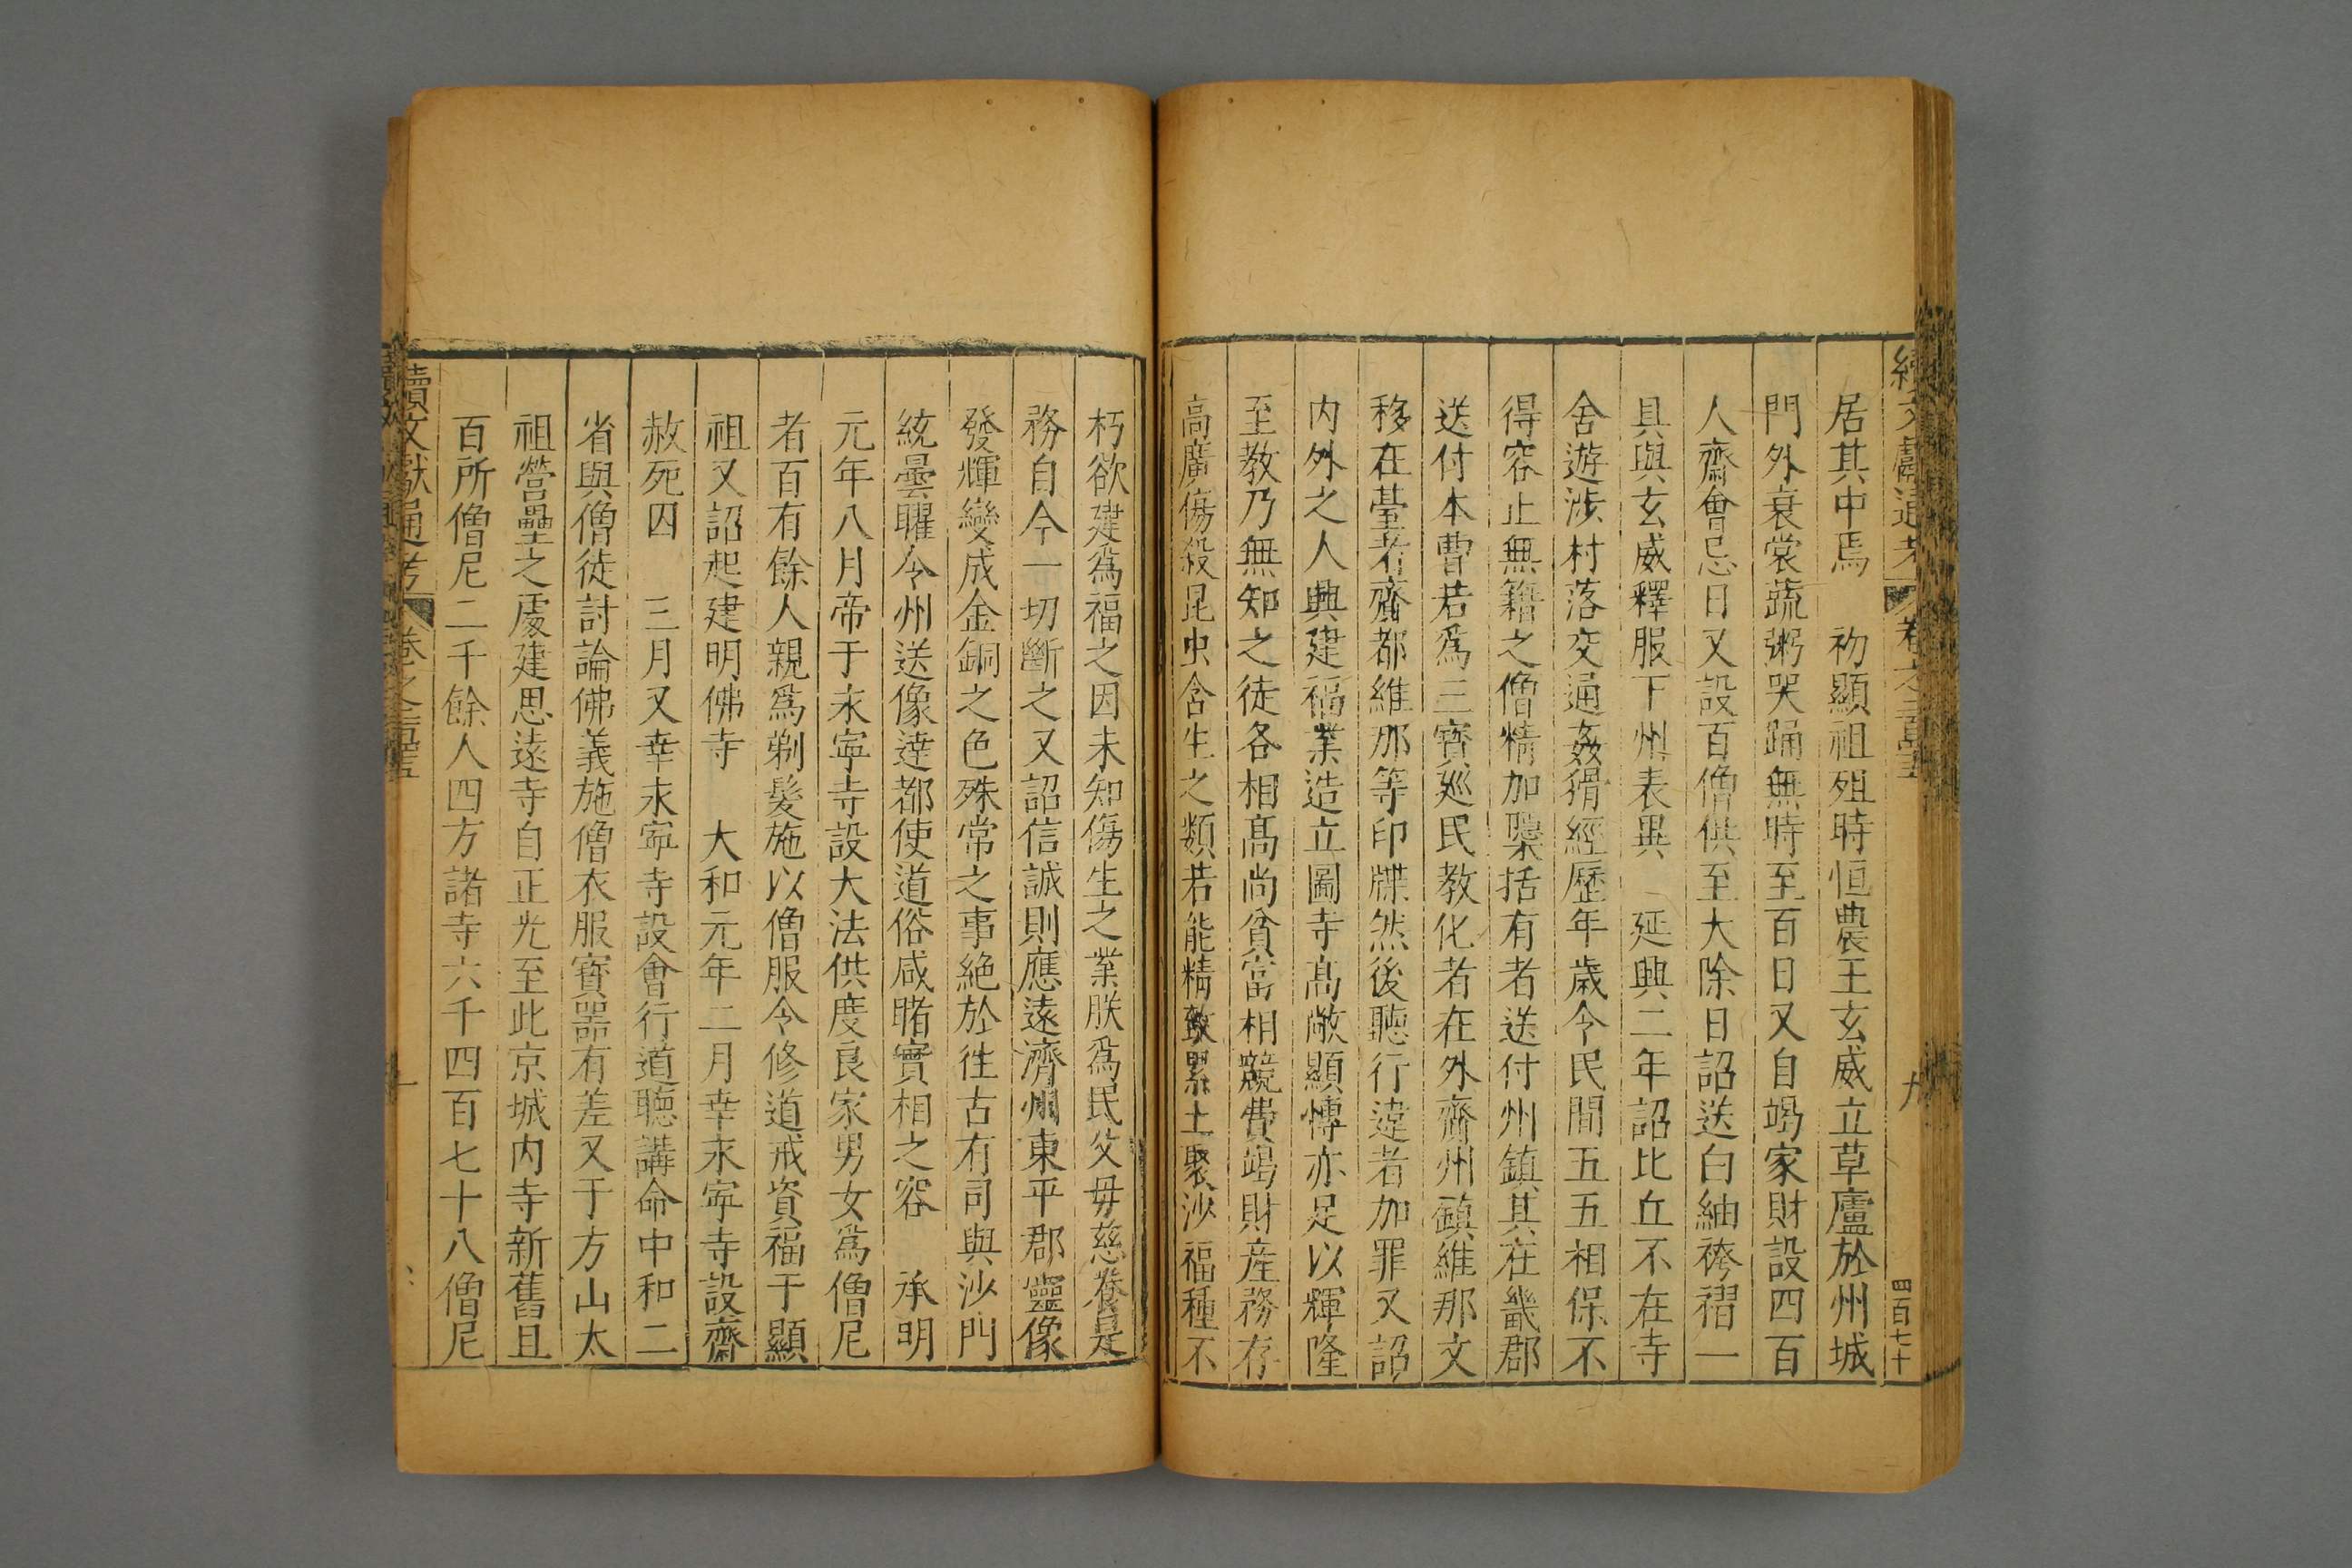 居其中焉　初顯祖殂時恒農王玄威立草廬於州城
門外衰裳蔬粥哭踊無時至百日又自竭家財設四百
人齋會忌日又設百僧供至大除日詔送白紬袴褶一
具與玄威釋服下州表異　延興二年詔比丘不在寺
舍遊涉村落交通姦猾經歷年歲令民間五五相保不
得容止無籍之僧精加隱括有者送付州鎮其在畿郡
送付本曹若爲三寶廵民教化者在外齎州鎮維那文
移在臺者齎都維那等印牒然後聽行違者加罪又詔
内外之人興建福業造立圖寺高敞顯博亦足以輝隆
至教乃無知之徒各相髙尚貧富相競費竭財産務存
高廣傷殺昆虫含生之類若能精致累土聚沙福種不
四百七十
九
朽欲建爲福之因未知傷生之業朕爲民父母慈養是
務自今一切斷之又詔信誠則應遠濟州東平郡靈像
發輝變成金銅之色殊常之事絶於往古有司與沙門
統曇曜令州送像達都使道俗咸睹實相之容　承明
元年八月帝于永寧寺設大法供度良家男女爲僧尼
者百有餘人親爲剃髮施以僧服令修道戒資福于顯
祖又詔起建明佛寺　大和元年二月幸永寧寺設齋
赦死囚　三月又幸永寧寺設會行道聽講命中和二
省與僧徒討論佛義施僧衣服寶器有差又于方山太
祖營壘之處建思遠寺自正光至此京城内寺新舊且
百所僧尼二千餘人四方諸寺六千四百七十八僧尼
續文獻通考